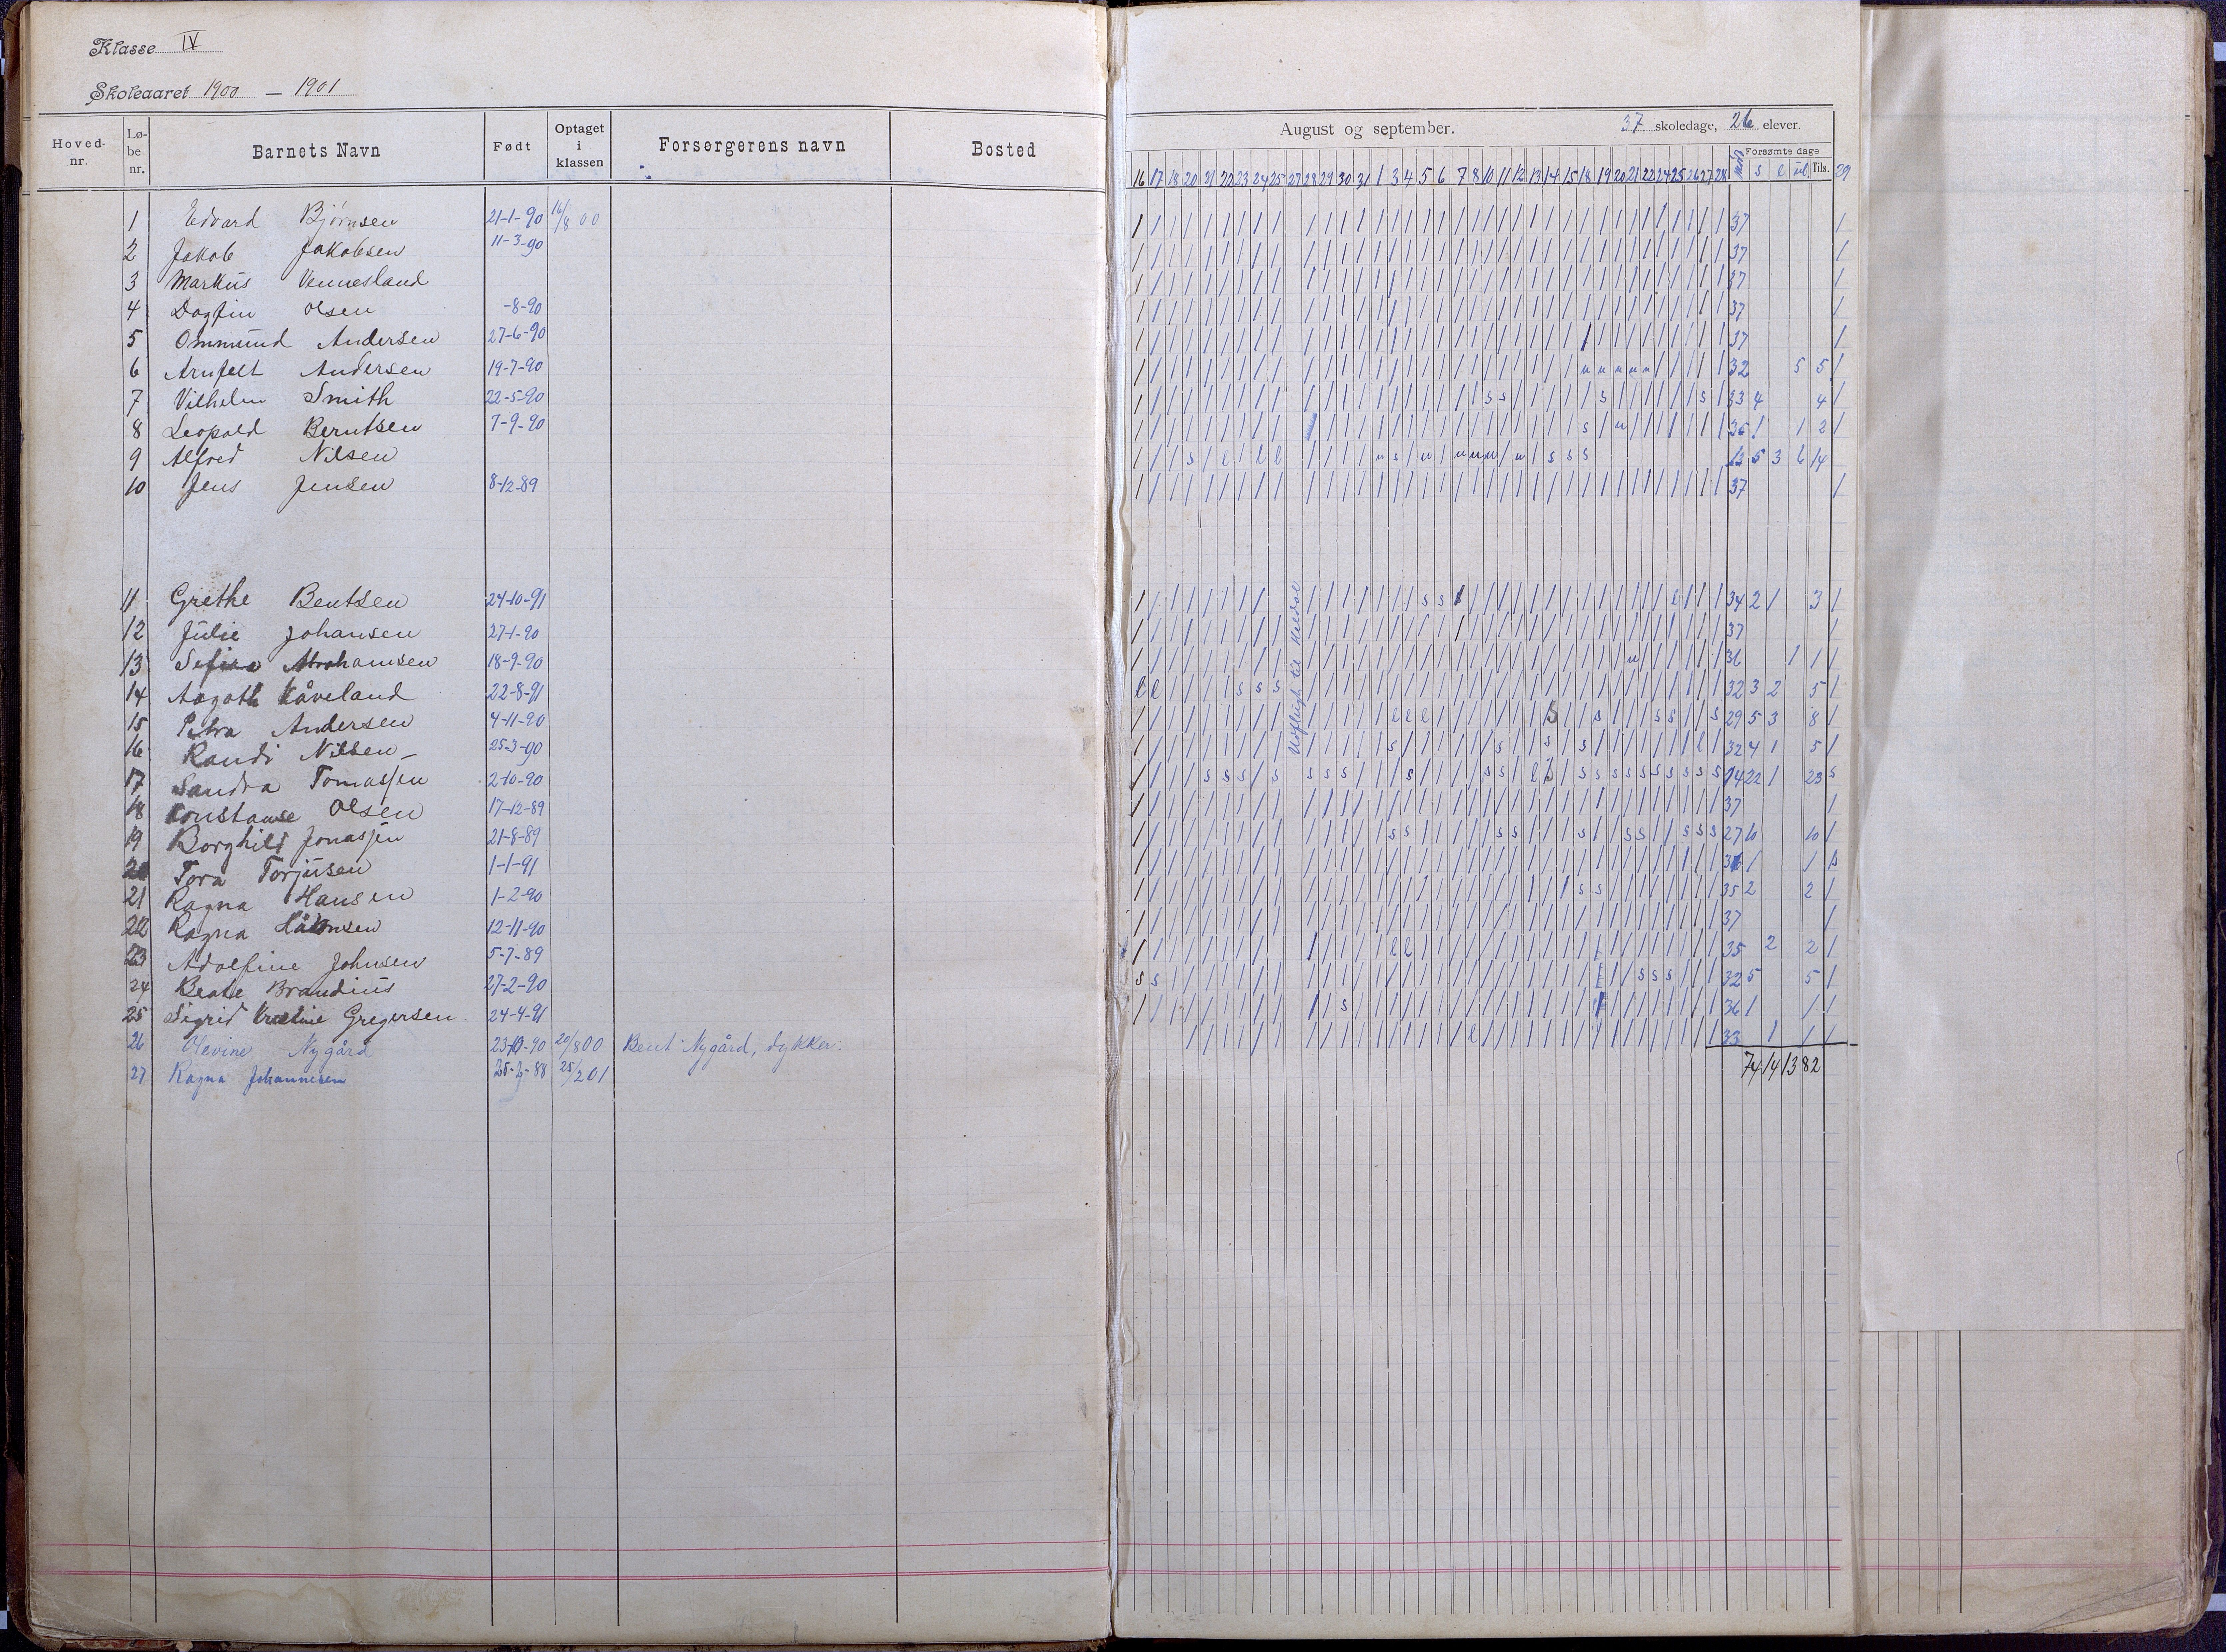 Klasse IV
Skoleaaret 1900 — 1901
Hoved-nr. Lø-be nr. Barnets Navn Født Optaget i klassen Forsørgerens navn Bosted
August og september. 37 skoledage, 26 elever.
Forsømte dage
16 17 18 20 21 22 23 24 25 27 28 29 30 31 1 3 4 5 6 7 8 10 11 12 13 14 15 18 19 20 21 22 24 25 26 27 28 s l ul Tils. 29
1 Edvard Bjørnsen 21-1-90 16/8 00 37
2 Jakob Jakobsen 11-3-90 37
3 Markus Vennesland 37
4 Dagfin Olsen -8-90 37
5 Ommund Andersen 27-6-90 37
6 Arnfelt Andersen 19-7-90 u u u u u 32 5 5
7 Vilhelm Smith 22-5-90 s s s s 33 4 4
8 Leopold Berntsen 7-9-90 s u 35 1 1 2
9 Alfred Nilsen s l l l u s u u u u u s s s 13 5 3 6 14
10 Jens Jensen 8-12-89 37
Udflugt til
11 Grethe Bentsen 24-10-91 s s l 34 2 1 3
12 Julie Johansen 27-1-90 37
13 Abrahamsen 18-9-90 u 36 1 1
14 Aagoth Kåveland 22-8-91 l l s s s 32 3 2 5
15 Petra Andersen 4-11-90 l l l s s s s s 29 5 3 8
16 Randi Nilsen 25-3-90 s s s s l 32 4 1 5
17 Sandra Tomassen 2-10-90 14 22 1 23 s
18 Konstanse Olsen 17-12-89 37
19 Borghild Jonassen 21-8-89 s s s s s s s s s s 27 10 10
20 Tora Torjusen 1-1-91 36 1 1 s
21 Ragna Hansen 1-2-90 s s 35 2 2
22 Ragna Håkonsen 12-11-90 37
23 Adolfine Johnsen 5-7-89 l l 35 2 2
24 Beate Brandius 27-2-90 s s s s s 32 5 5
25 Sigrid Kristine Gregersen 24-4-91 s 36 1 1
26 Olevine Nygård 23-10-90 20/8 00 Bent Nygård, dykker. l 33 1 1
27 Ragna Johannesen 25-3-88 25/2 01
74 14 13 82